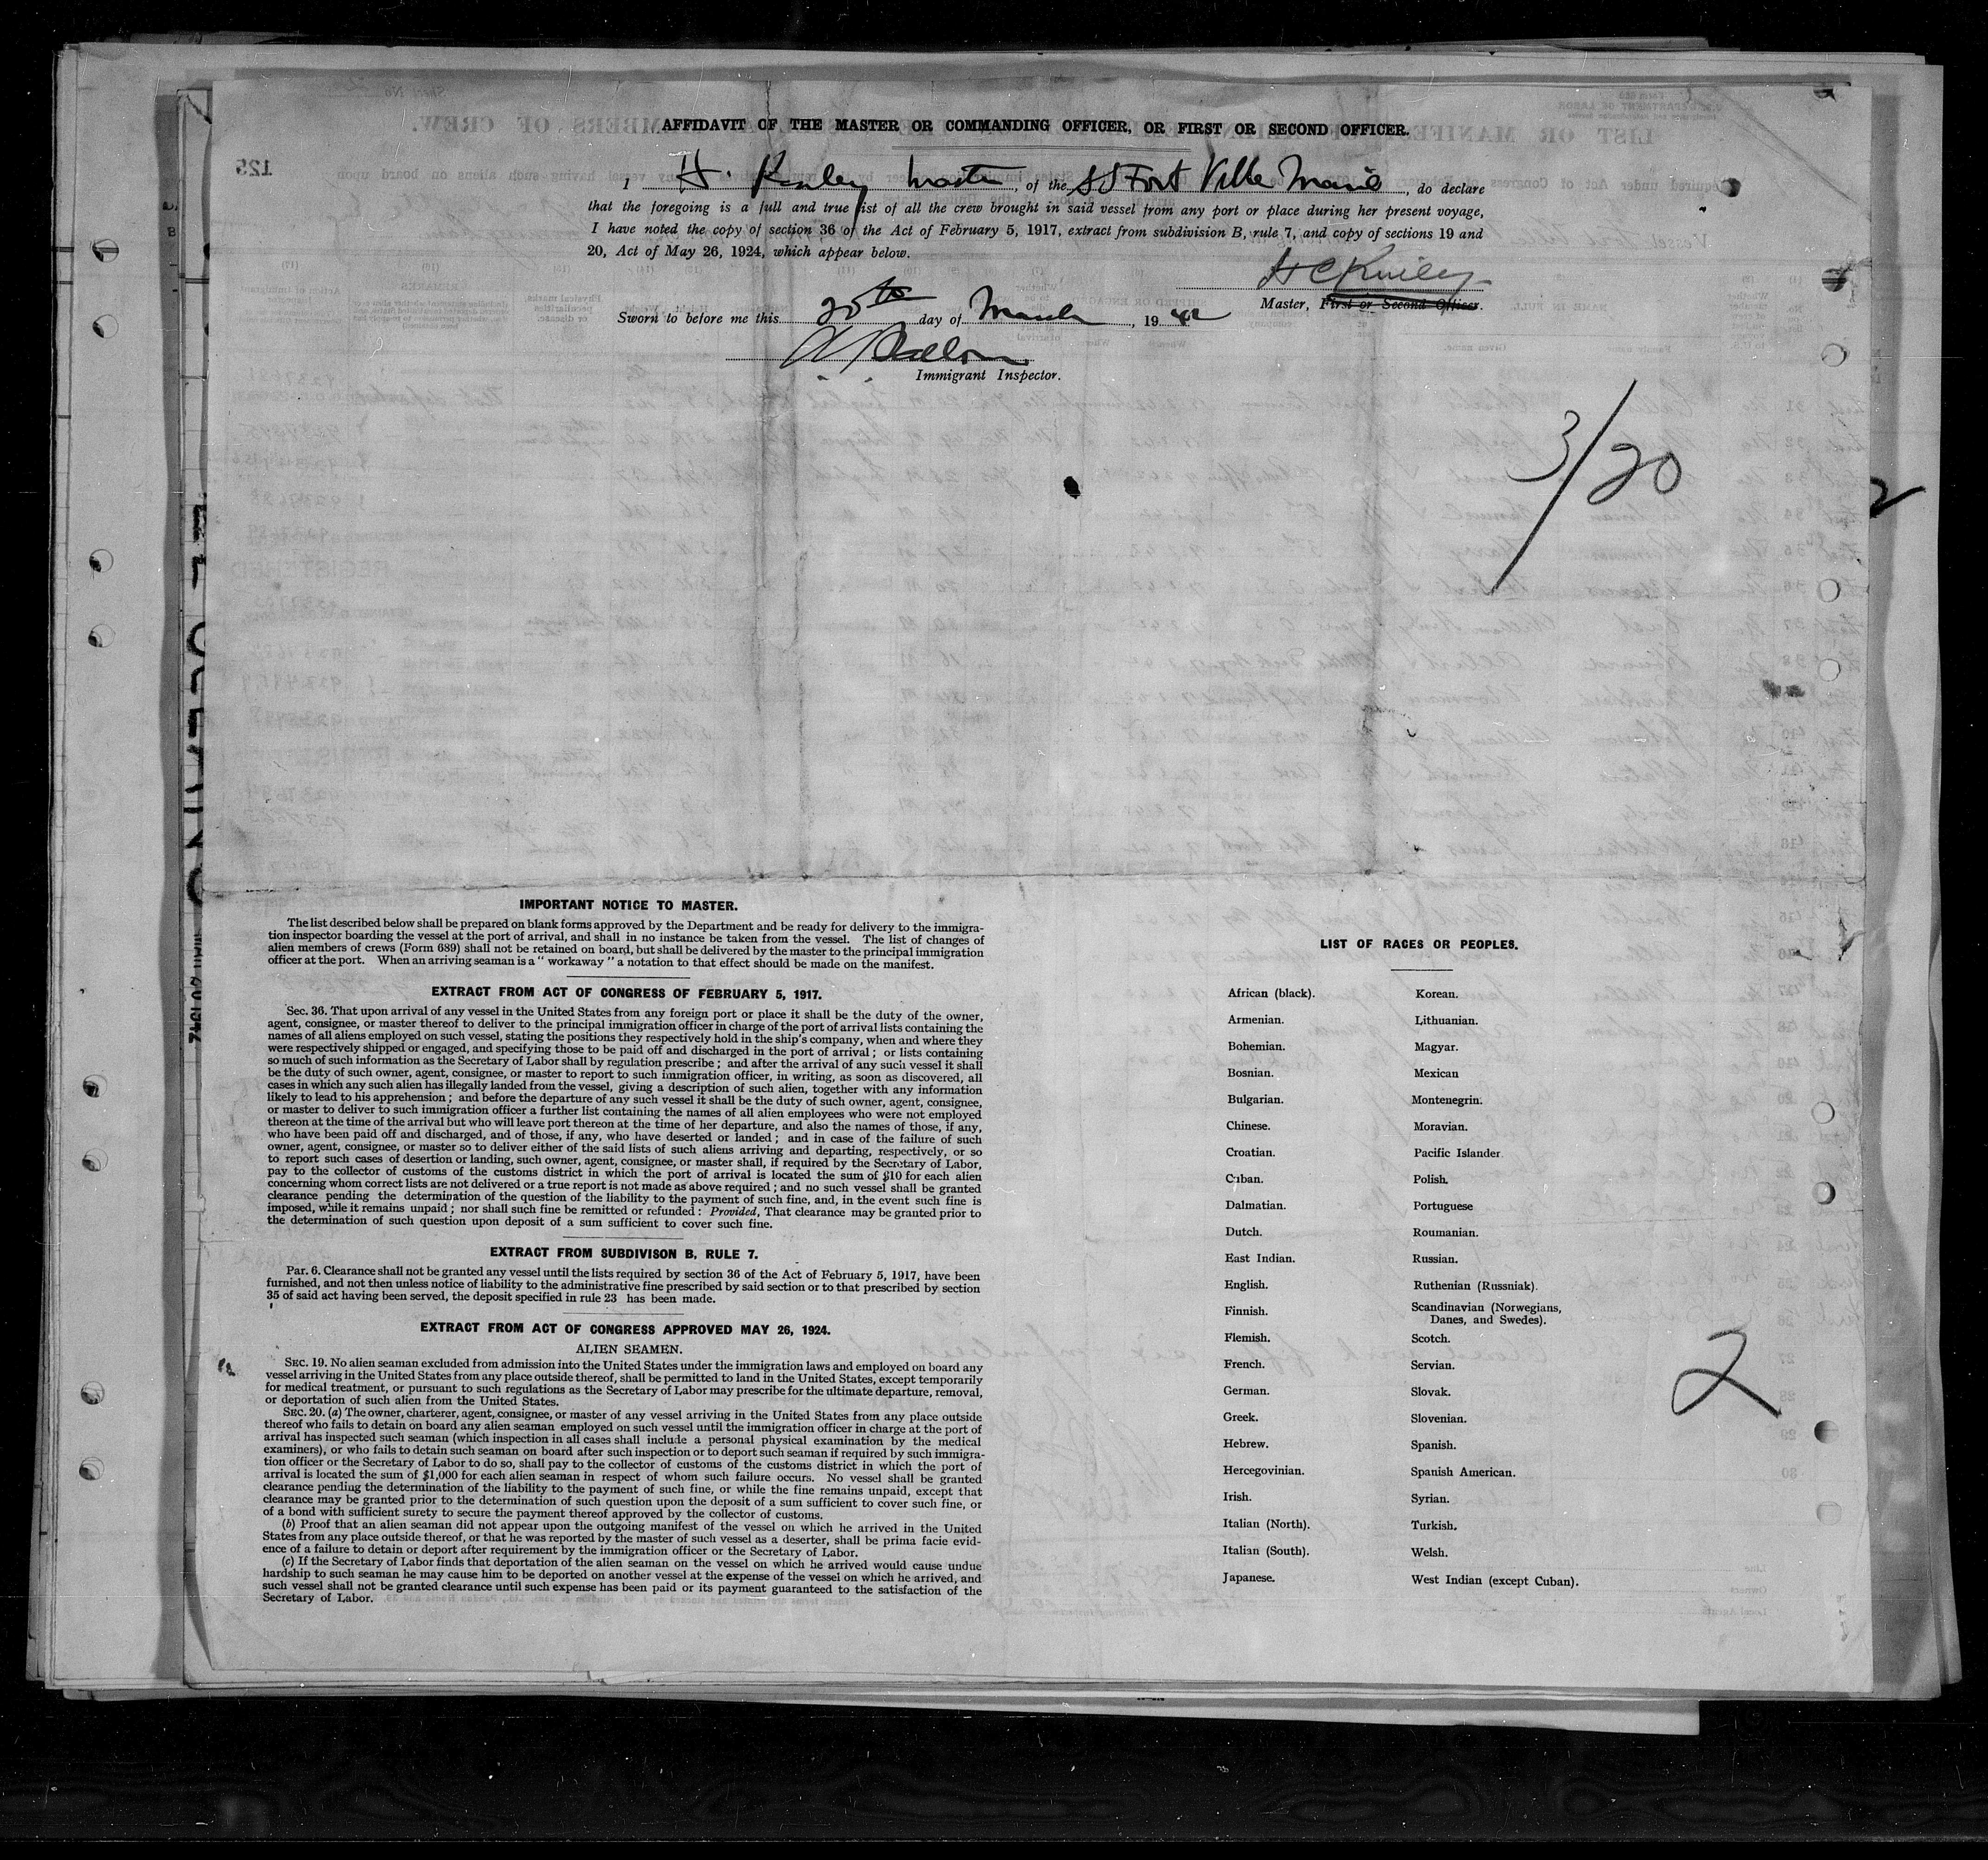 AFFIDAVIT OF THE MASTER OR COMMANDING OFFICER, OR FIRST OR SECOND OFFICER.
I H. Kinley Master, of the SS Fort Ville Marie, do declare
that the foregoing is a full and true list of all the crew brought in said vessel from any port or place during her present voyage,
I have noted the copy of section 36 of the Act of February 5, 1917, extract from subdivision B, rule 7, and copy of sections 19 and
20, Act of May 26, 1924, which appear below.
Master, First or Second Officer.
Sworn to before me this 20th day of March, 1942
Immigrant Inspector.
3/20
2
IMPORTANT NOTICE TO MASTER.
The list described below shall be prepared on blank forms approved by the Department and be ready for delivery to the immigra-
tion inspector boarding the vessel at the port of arrival, and shall in no instance be taken from the vessel. The list of changes of
alien members of crews (Form 689) shall not be retained on board, but shall be delivered by the master to the principal immigration
officer at the port. When an arriving seaman is a " workaway " a notation to that effect should be made on the manifest.
EXTRACT FROM ACT OF CONGRESS OF FEBRUARY 5, 1917.
Sec. 36. That upon arrival of any vessel in the United States from any foreign port or place it shall be the duty of the owner,
agent, consignee, or master thereof to deliver to the principal immigration officer in charge of the port of arrival lists containing the
names of all aliens employed on such vessel, stating the positions they respectively hold in the ship's company, when and where they
were respectively shipped or engaged, and specifying those to be paid off and discharged in the port of arrival ; or lists containing
so much of such information as the Secretary of Labor shall by regulation prescribe ; and after the arrival of any such vessel it shall
be the duty of such owner, agent, consignee, or master to report to such immigration officer, in writing, as soon as discovered, all
cases in which any such alien has illegally landed from the vessel, giving a description of such alien, together with any information
likely to lead to his apprehension ; and before the departure of any such vessel it shall be the duty of such owner, agent, consignee,
or master to deliver to such immigration officer a further list containing the names of all alien employees who were not employed
thereon at the time of the arrival but who will leave port thereon at the time of her departure, and also the names of those, if any,
who have been paid off and discharged, and of those, if any, who have deserted or landed ; and in case of the failure of such
owner, agent, consignee, or master so to deliver either of the said lists of such aliens arriving and departing, respectively, or so
to report such cases of desertion or landing, such owner, agent, consignee, or master shall, if required by the Secretary of Labor,
pay to the collector of customs of the customs district in which the port of arrival is located the sum of $10 for each alien
concerning whom correct lists are not delivered or a true report is not made as above required ; and no such vessel shall be granted
clearance pending the determination of the question of the liability to the payment of such fine, and, in the event such fine is
imposed, while it remains unpaid ; nor shall such fine be remitted or refunded : Provided, That clearance may be granted prior to
the determination of such question upon deposit of a sum sufficient to cover such fine.
EXTRACT FROM SUBDIVISON B, RULE 7.
Par. 6. Clearance shall not be granted any vessel until the lists required by section 36 of the Act of February 5, 1917, have been
furnished, and not then unless notice of liability to the administrative fine prescribed by said section or to that prescribed by section
35 of said act having been served, the deposit specified in rule 23 has been made.
EXTRACT FROM ACT OF CONGRESS APPROVED MAY 26, 1924.
ALIEN SEAMEN.
SEC. 19. No alien seaman excluded from admission into the United States under the immigration laws and employed on board any
vessel arriving in the United States from any place outside thereof, shall be permitted to land in the United States, except temporarily
for medical treatment, or pursuant to such regulations as the Secretary of Labor may prescribe for the ultimate departure, removal,
or deportation of such alien from the United States.
SEC. 20. (a) The owner, charterer, agent, consignee, or master of any vessel arriving in the United States from any place outside
thereof who fails to detain on board any alien seaman employed on such vessel until the immigration officer in charge at the port of
arrival has inspected such seaman (which inspection in all cases shall include a personal physical examination by the medical
examiners), or who fails to detain such seaman on board after such inspection or to deport such seaman if required by such immigra-
tion officer or the Secretary of Labor to do so, shall pay to the collector of customs of the customs district in which the port of
arrival is located the sum of $1,000 for each alien seaman in respect of whom such failure occurs. No vessel shall be granted
clearance pending the determination of the liability to the payment of such fine, or while the fine remains unpaid, except that
clearance may be granted prior to the determination of such question upon the deposit of a sum sufficient to cover such fine, or
of a bond with sufficient surety to secure the payment thereof approved by the collector of customs.
(b) Proof that an alien seaman did not appear upon the outgoing manifest of the vessel on which he arrived in the United
States from any place outside thereof, or that he was reported by the master of such vessel as a deserter, shall be prima facie evid-
ence of a failure to detain or deport after requirement by the immigration officer or the Secretary of Labor.
(c) If the Secretary of Labor finds that deportation of the alien seaman on the vessel on which he arrived would cause undue
hardship to such seaman he may cause him to be deported on another vessel at the expense of the vessel on which he arrived, and
such vessel shall not be granted clearance until such expense has been paid or its payment guaranteed to the satisfaction of the
Secretary of Labor.
LIST OF RACES OR PEOPLES.
African (black). Korean.
Armenian. Lithuanian.
Bohemian. Magyar.
Bosnian. Mexican
Bulgarian. Montenegrin.
Chinese. Moravian.
Croatian. Pacific Islander
Cuban. Polish.
Dalmatian. Portuguese
Dutch. Roumanian.
East Indian. Russian.
English. Ruthenian (Russniak).
Finnish. Scandinavian (Norwegians,
Danes, and Swedes).
Flemish. Scotch.
French. Servian.
German. Slovak.
Greek. Slovenian.
Hebrew. Spanish.
Hercegovinian. Spanish American.
Irish. Syrian.
Italian (North). Turkish.
Italian (South). Welsh.
Japanese. West Indian (except Cuban).
2